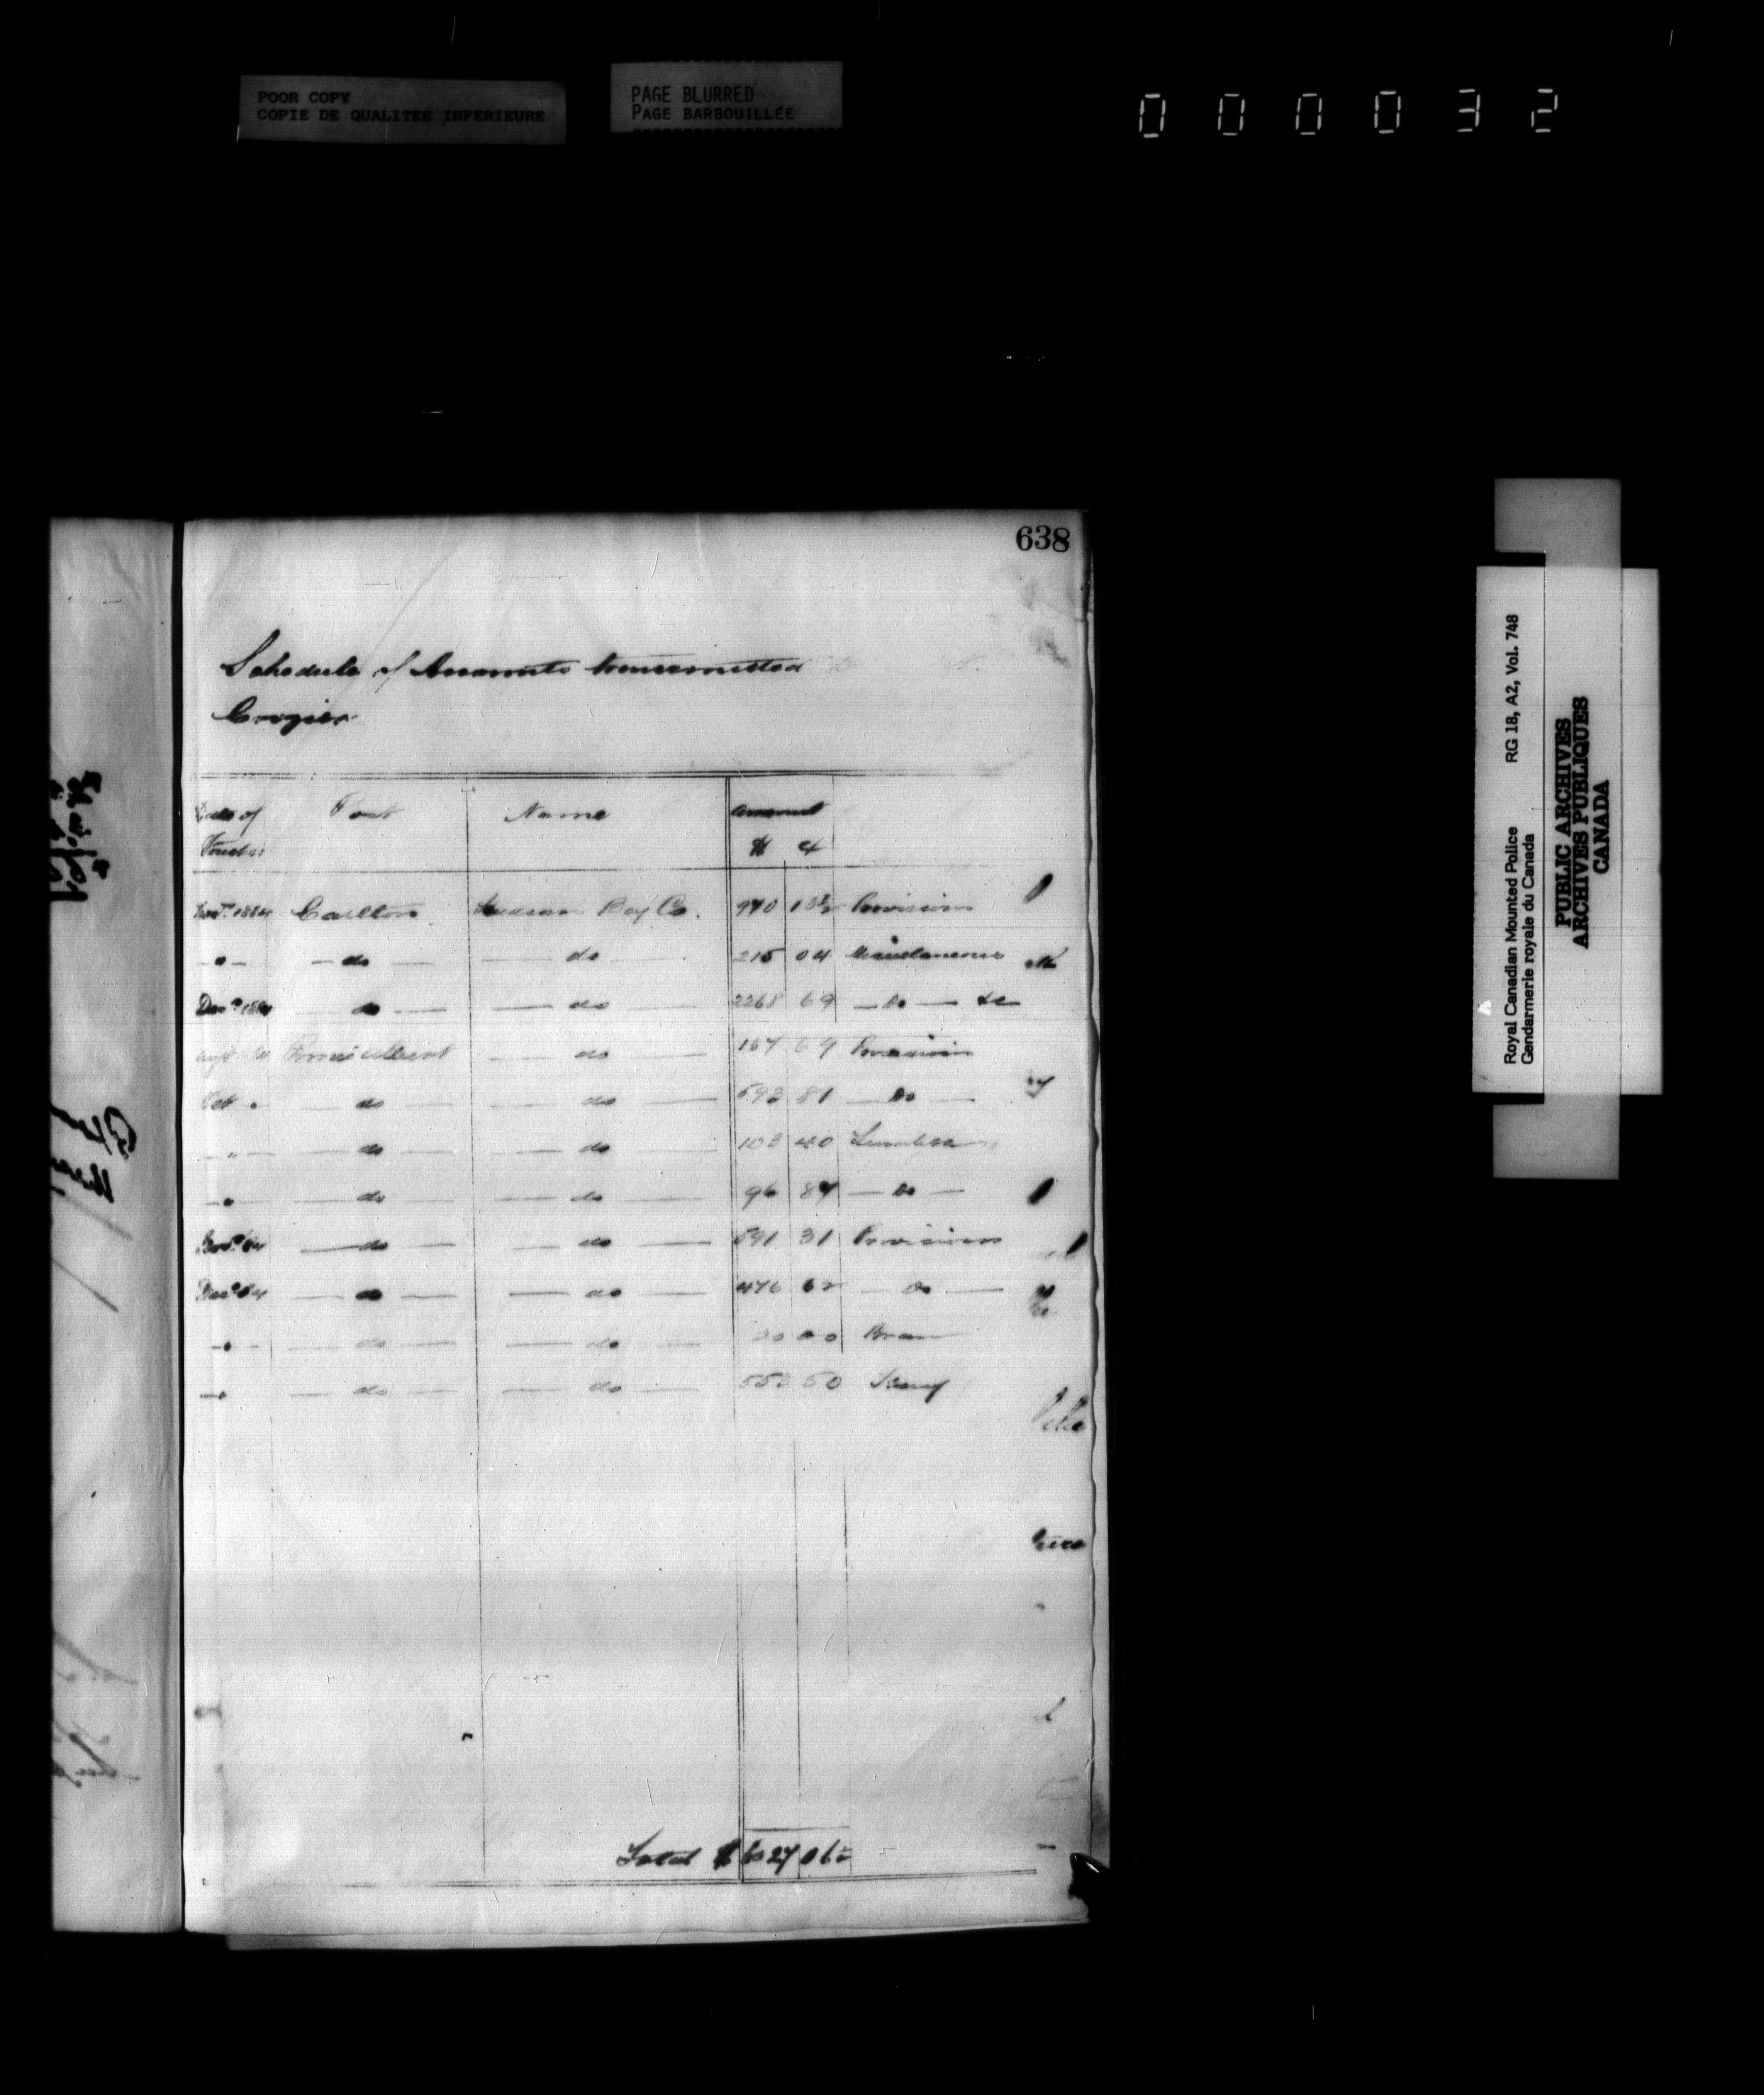 POOR COPY
COPIE DE QUALITEE INFERIEURE
PAGE BLURRED
PAGE BARBOUILLÉE
000032
638
Schedule of Accounts transmitted
Crozier
Date of Post Name Amount
Voucher $ ¢
Nov. 1884 Carlton Hudson Bay Co. 940 13½ Provisions
" do do 215 04 Miscellaneous
Dec. 1884 do do 2268 69 Do &c
Prince Albert do 167 69 Provisions
Oct " do do 593 81 Do
" do do 103 40 Lumber
" do do 96 87 Do
Nov. 84 do do 591 31 Provisions
Dec. 84 do do 476 62 Do
" do do 20 00 Bran
" do do 553 50
Total $ 6027 06½
Royal Canadian Mounted Police RG 18, A2, Vol. 748
Gendarmerie royale du Canada
PUBLIC ARCHIVES
ARCHIVES PUBLIQUES
CANADA